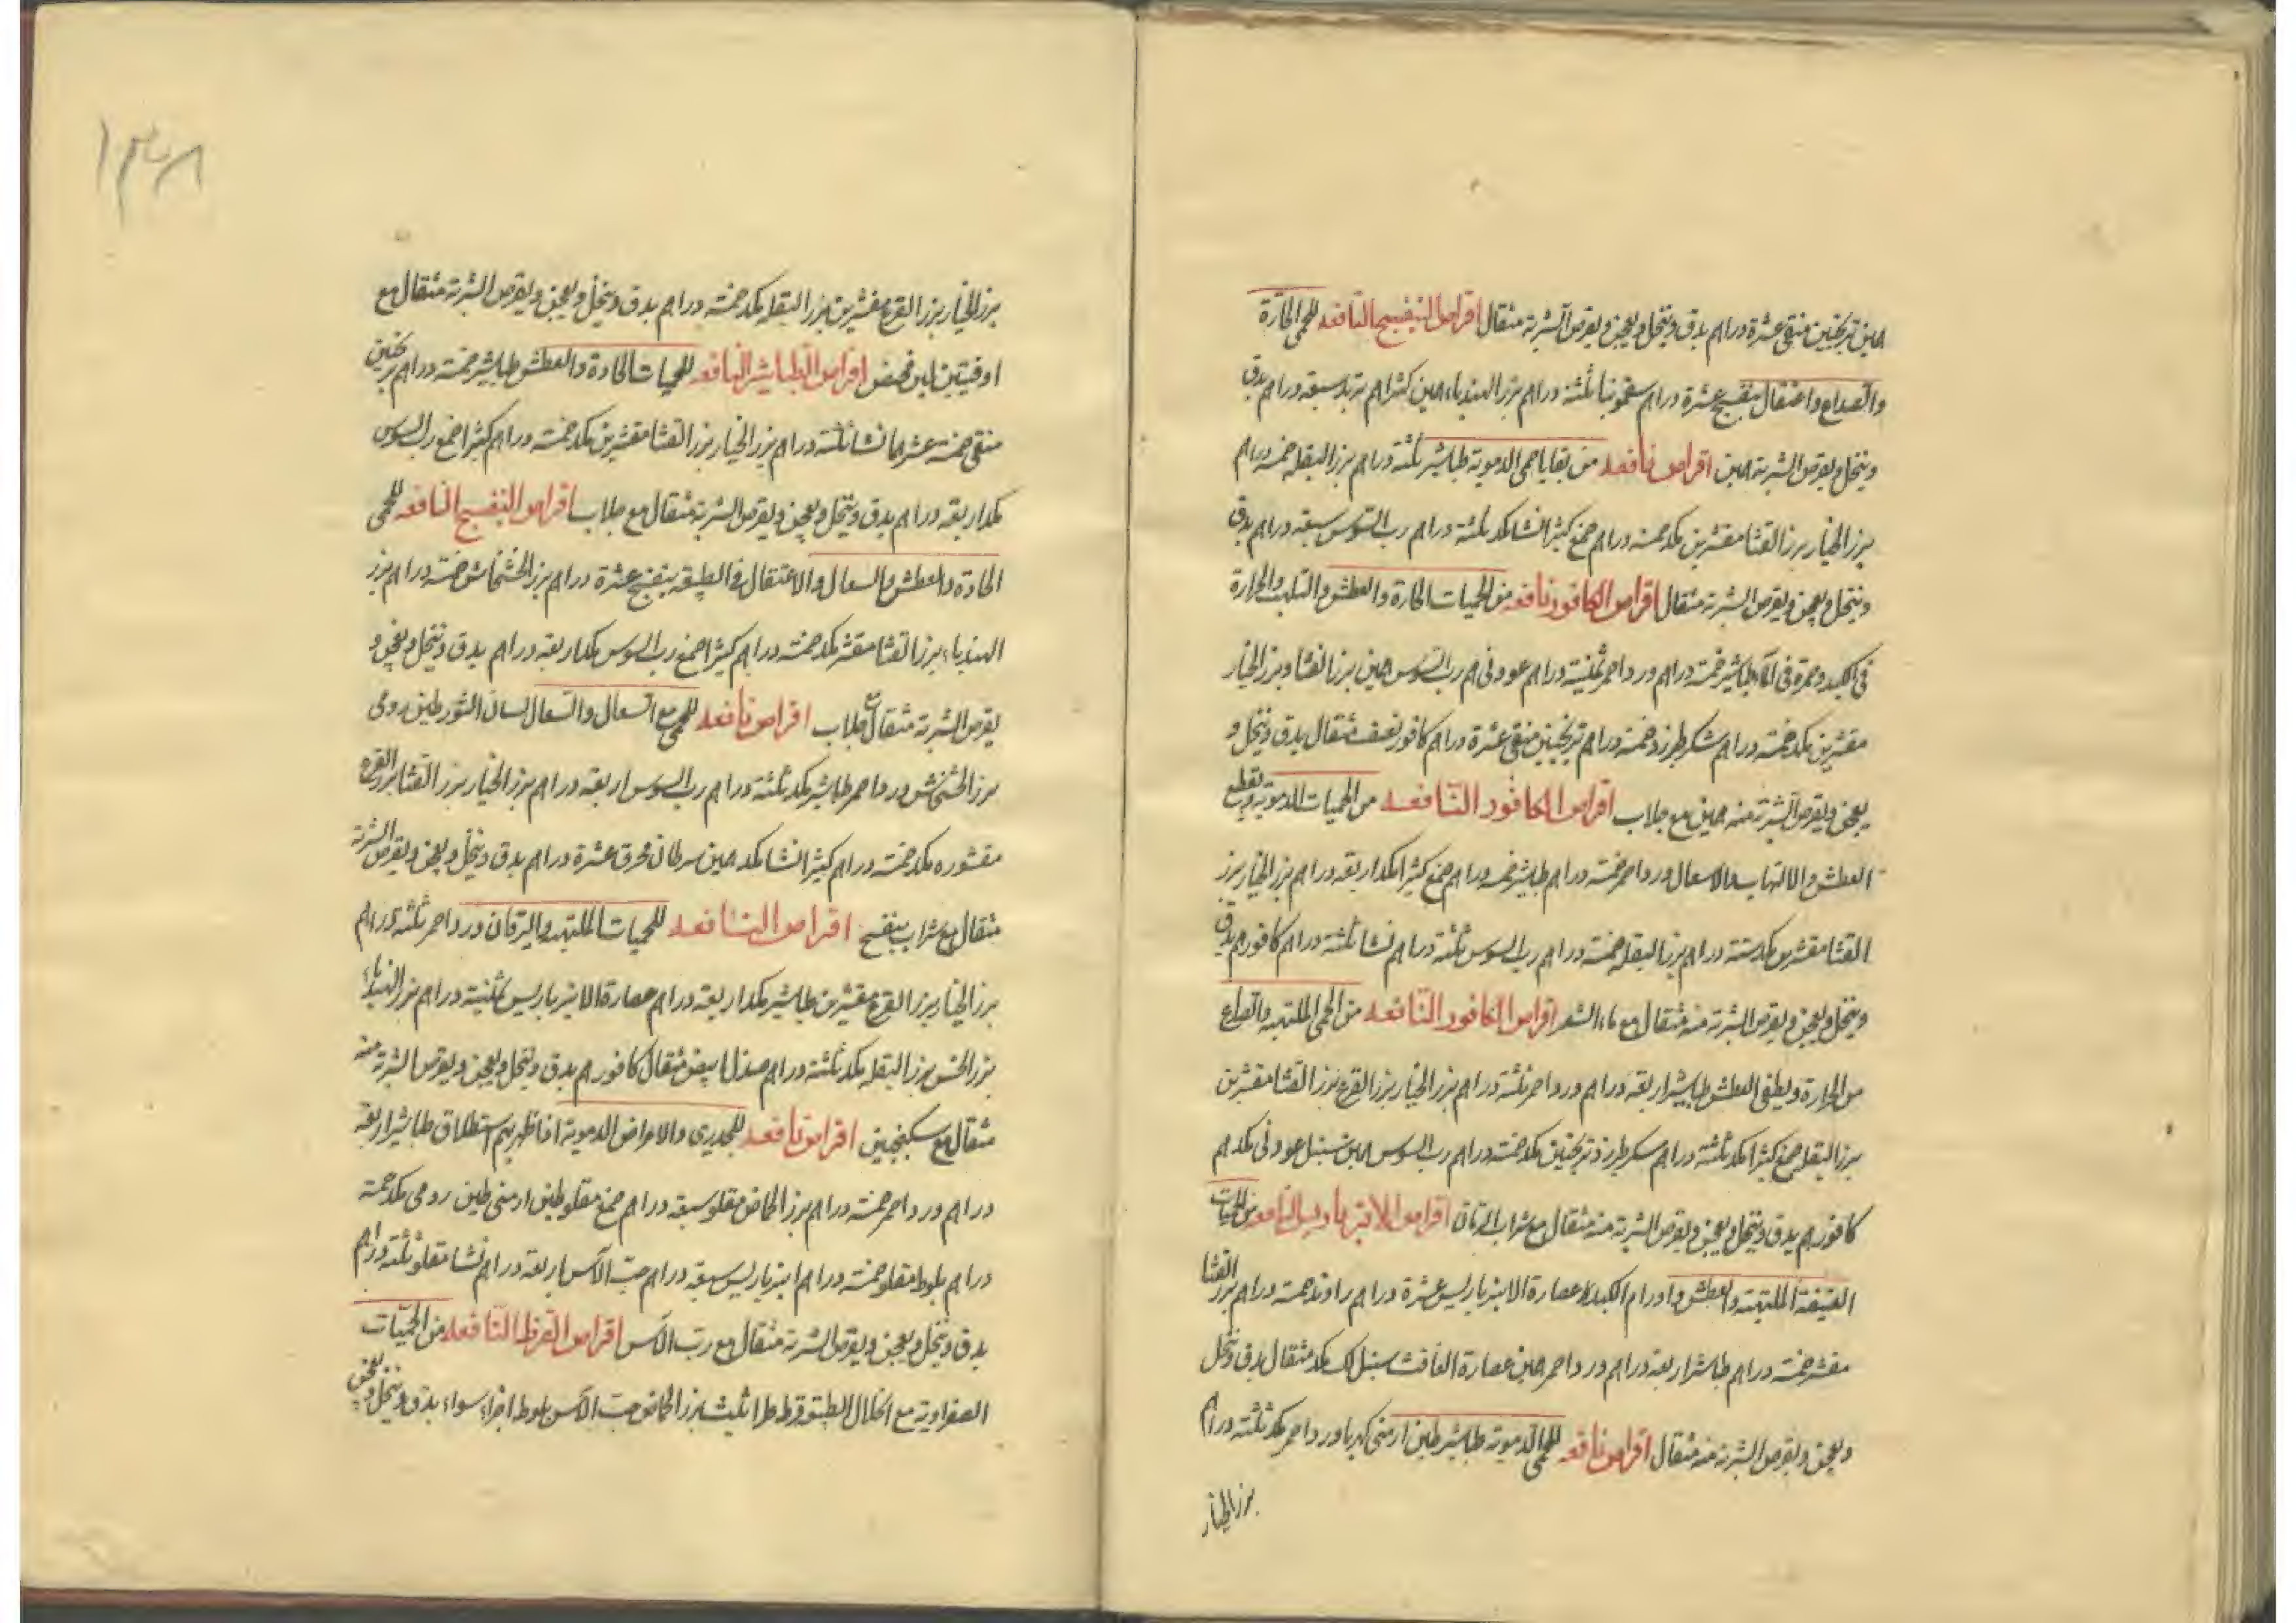 همين ترنجبين منقى عشرة دراهم يدق وينخل ويعجن ويقرص الشربة مثقال اقراص البنفسج النافعه للحمى الحارة
والصداع واعتقال بنفسج عشرة دراهم سقمونيا ثلثة دراهم بزر الهندباء همين كثيرا هم تربد سبعة دراهم يدق
وينخل ويقرص الشربة همين اقراص نافعه من بقايا حمى الدموية طباشير ثلثة دراهم بزر البقله خمسه دراهم
بزر الخيار بزر القثا مقشرين مكد خمسة دراهم صمغ كثيرا نشا مكد ثلثة دراهم رب السوس سبعة دراهم يدق
وينخل ويعجن ويقرص الشربة مثقال اقراص الكافور نافعه من الحميات الحارة والعطش والتلهب والحرارة
فى الكبد وحمرة فى الماء طباشير خمسة دراهم ورد احمر ثمنية دراهم عود نى هم رب السوس همين بزر القثا وبزر الخيار
مقشرين مكد خمسة دراهم سكر طبرزد خمسة دراهم ترنجبين منقى عشرة دراهم كافور نصف مثقال يدق وينخل و
يعجن ويقرص الشربة منه همين مع جلاب اقراص الكافور النافعه من الحميات الدموية ويقطع
العطش والالتهاب والاسهال ورد احمر خمسة دراهم طباشير خمسه دراهم صمغ كثيرا مكد اربعه دراهم بزر الخيار بزر
القثا مقشرين مكد ستة دراهم بزر البقله خمسة دراهم رب السوس ثلثة دراهم نشا ثلثة دراهم كافور هم يدق
وينخل ويعجن ويقرص الشربة منه مثقال مع ماء الشعر اقراص الكافور النافعه من الحمى الملتهبه والصداع
من الحرارة ويطفى العطش طباشير اربعه دراهم ورد احمر ثلثة دراهم بزر الخيار بزر القرع بزر القثا مقشرين
بزر البقله صمغ كثيرا مكد ثلثة دراهم سكر طبرزد ترنجبين مكد خمسة دراهم رب السوس همين سنبل عود نى مكد هم
كافور هم يدق وينخل ويعجن ويقرص الشربة منه مثقال مع شراب الرمان اقراص الانبرباريس النافعه من الحميات
العتيقة الملتهبه والعطش واورام الكبد عصارة الانبرباريس عشرة دراهم راوند خمسة دراهم بزر القثا
مقشر خمسة دراهم طباشير اربعه دراهم ورد احمر همين عصارة الغافت سنبل لك مكد مثقال يدق وينخل
ويعجن ويقرص الشربة منه مثقال اقراص نافعه للحمى الدموية طباشير طين ارمنى كهربا ورد احمر مكد ثلثة دراهم
بزر الخيار
١٣٨
بزر الخيار بزر القرع مقشرين بزر البقله مكد خمسة دراهم يدق وينخل ويعجن ويقرص الشربة مثقال مع
اوقيتين لبن مخيض اقراص الطباشير النافعه للحميات الحادة والعطش طباشير خمسة دراهم ترنجبين
منقى خمسة عشر هما نشا ثلثة دراهم بزر الخيار بزر القثا مقشرين مكد خمسة دراهم كثيرا صمغ رب السوس
مكد اربعه دراهم يدق وينخل ويعجن ويقرص الشربة مثقال مع جلاب اقراص البنفسج النافعه للحمى
الحادة والعطش والسعال والاعتقال فى الطبيعة بنفسج عشرة دراهم بزر الخشخاش خمسة دراهم بزر
الهندباء بزر القثا مقشر مكد خمسة دراهم كثيرا صمغ رب السوس مكد اربعه دراهم يدق وينخل ويعجن و
يقرص الشربة مثقال مع جلاب اقراص نافعه للحمى مع اسهال والسعال لسان الثور طين رومى
بزر الخشخاش ورد احمر طباشير مكد ثلثة دراهم رب السوس اربعه دراهم بزر الخيار بزر القثا بزر القرع
مقشوره مكد خمسة دراهم كثيرا نشا مكد همين سرطان محرق عشرة دراهم يدق وينخل ويعجن ويقرص الشربة
مثقال مع شراب بنفسج اقراص النافعه للحميات الملتهبه واليرقان ورد احمر ثلثة دراهم
بزر الخيار بزر القرع مقشرين طباشير مكد اربعه دراهم عصارة الانبرباريس ثمنية دراهم بزر الهندباء
بزر الخس بزر البقله مكد ثلثة دراهم صندل ابيض مثقال كافور هم يدق وينخل ويعجن ويقرص الشربة منه
مثقال مع سكنجبين اقراص نافعه للجدرى والامراض الدموية اذا ظهر بهم استطلاق طباشير اربعة
دراهم ورد احمر خمسة دراهم بزر الحماض مقلو سبعة دراهم صمغ مقلو طين ارمنى طين رومى مكد خمسة
دراهم بلوط مقلو خمسة دراهم انبرباريس سبعة دراهم حب الآس اربعة دراهم نشا مقلو ثلثة دراهم
يدق وينخل ويعجن ويقرص الشربة مثقال مع رب الآس اقراص القرظ النافعه من الحميات
الصفراوية مع انحلال الطبيعة قرظ طراثيث بزر الحماض حب الآس بلوط اجزاء سواء يدق وينخل ويعجن